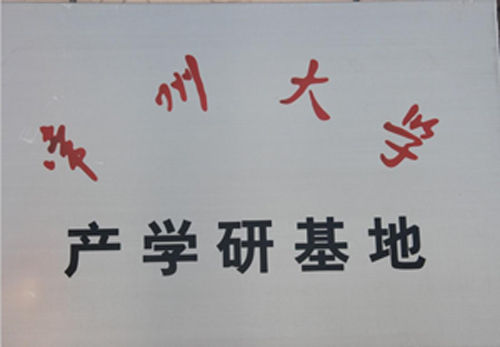 常州大学
产学研基地